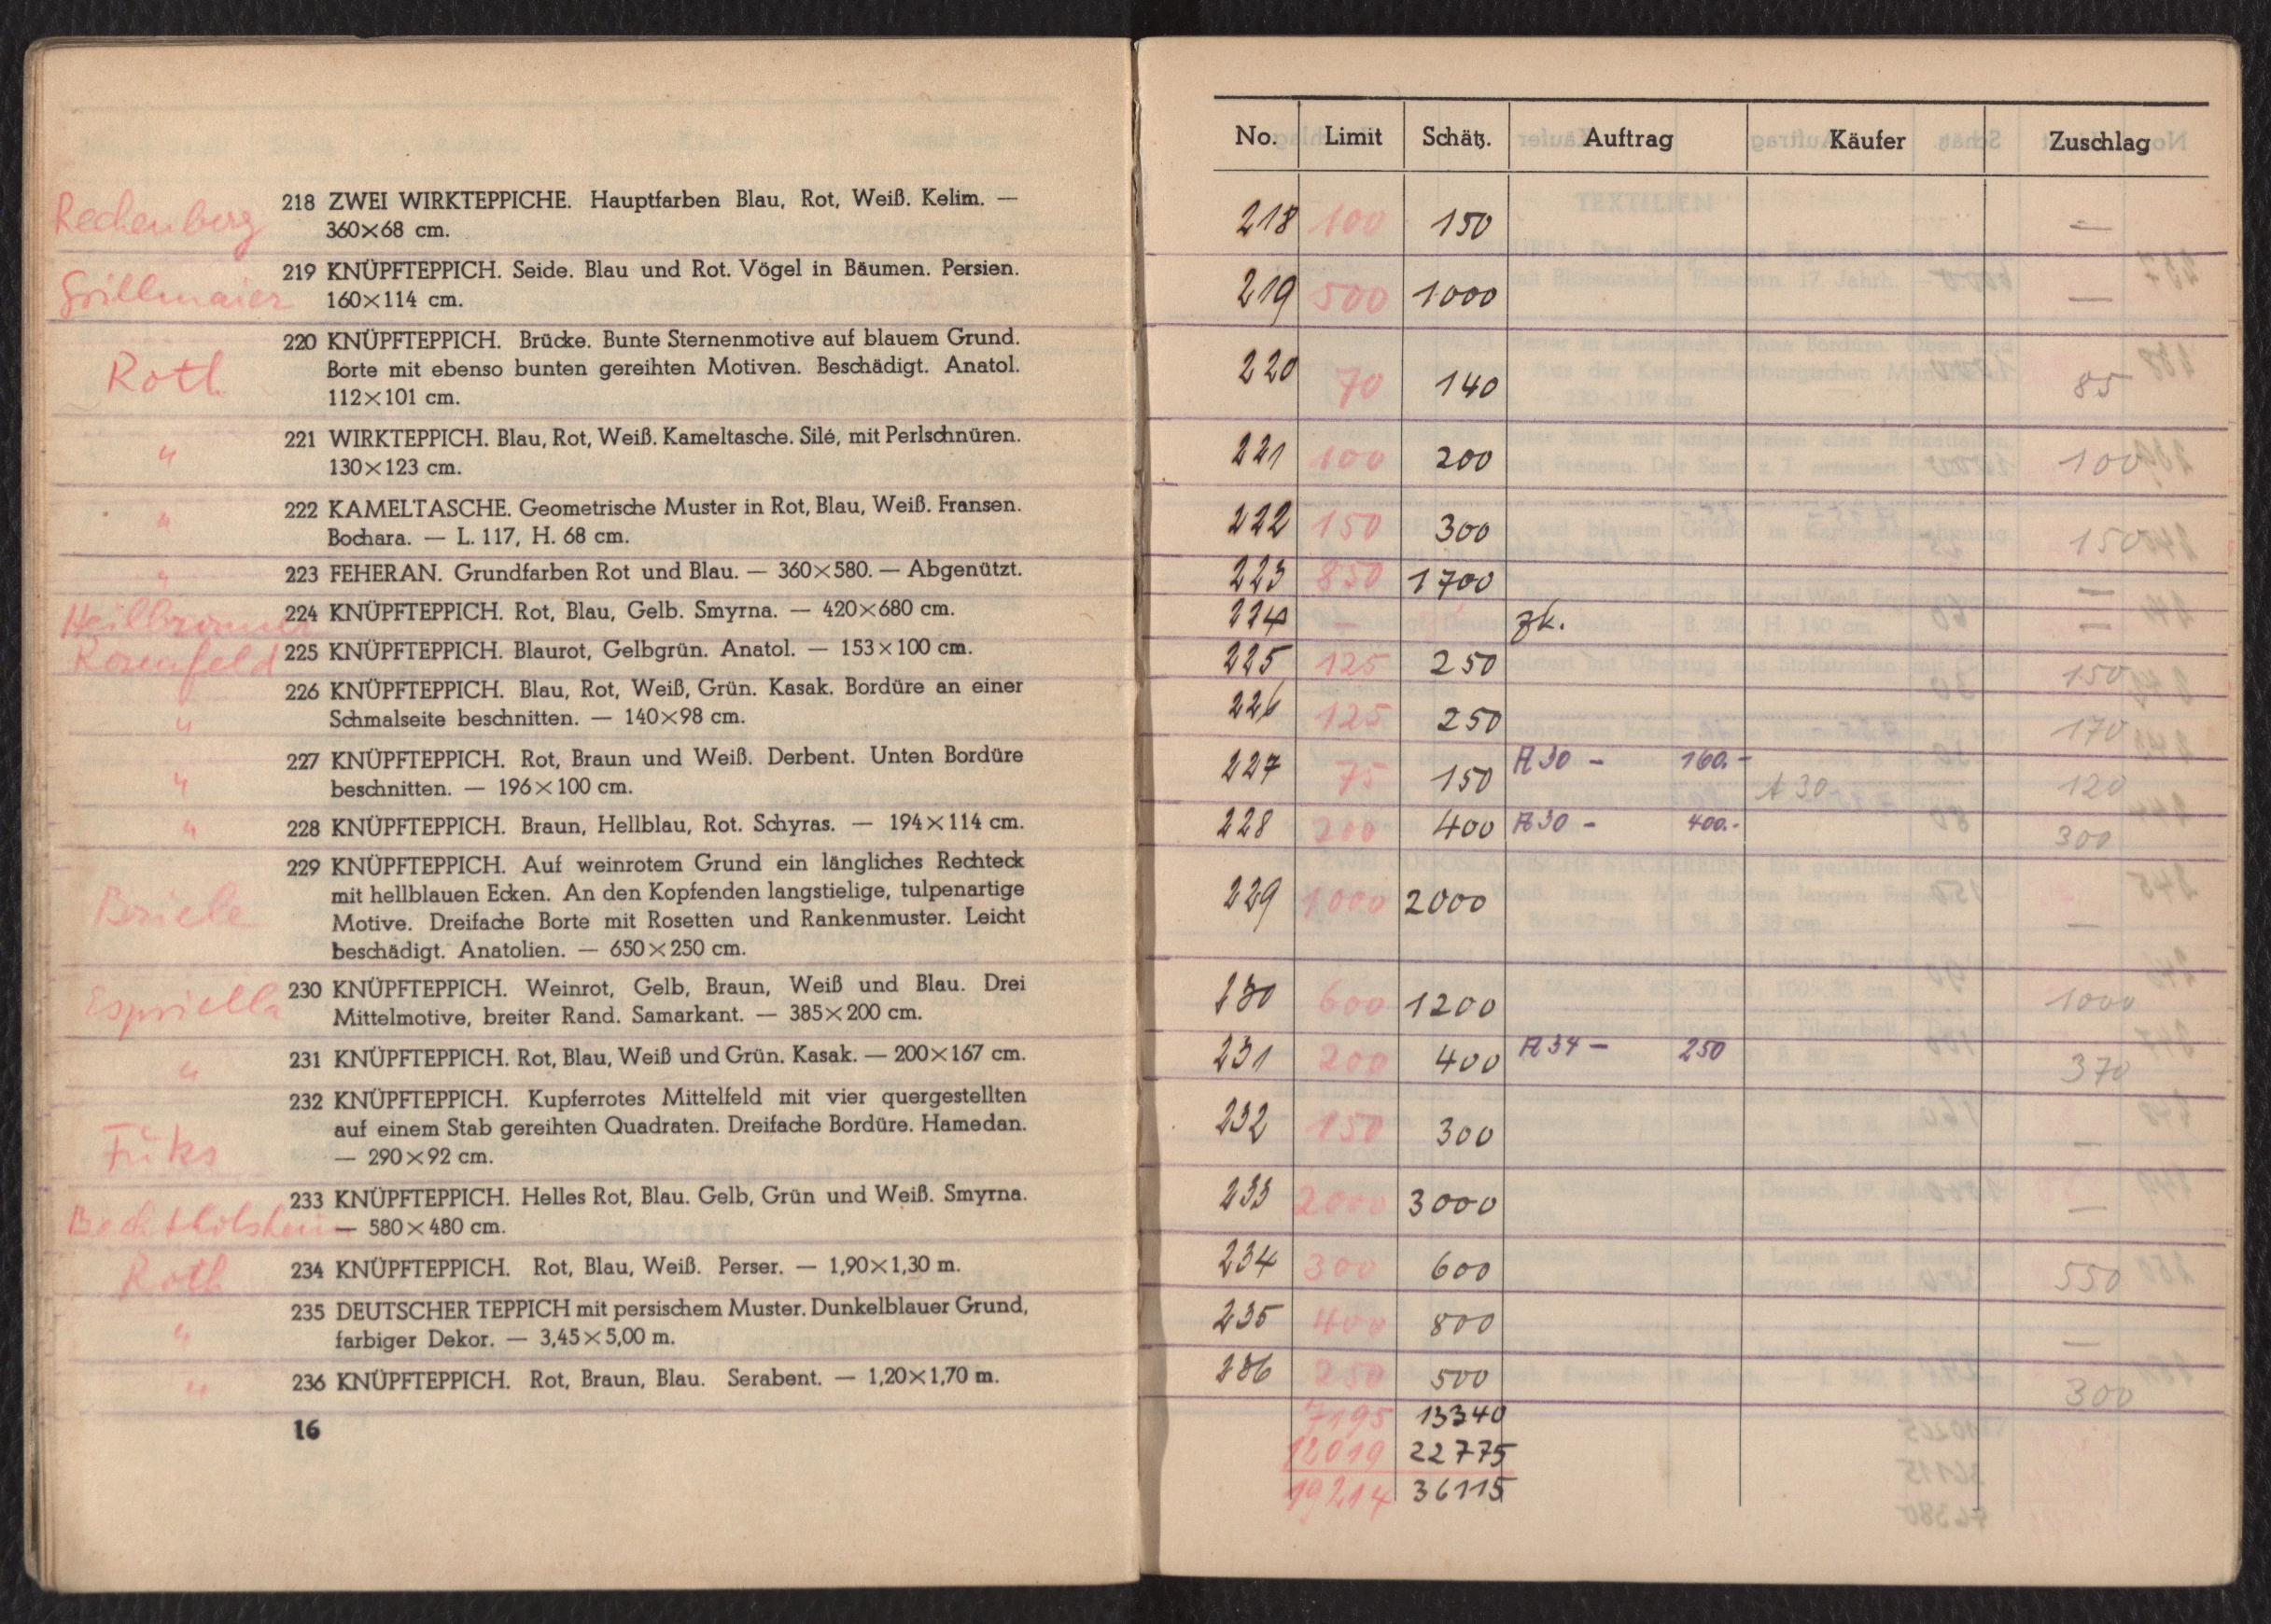 Rechenberg
218 ZWEI WIRKTEPPICHE. Hauptfarben Blau, Rot, Weiß. Kelim. —
360×68 cm.
219 KNÜPFTEPPICH. Seide. Blau und Rot. Vögel in Bäumen. Persien.
Grillmaier
160×114 cm.
220 KNÜPFTEPPICH. Brücke. Bunte Sternenmotive auf blauem Grund.
Roth
Borte mit ebenso bunten gereihten Motiven. Beschädigt. Anatol.
112×101 cm.
221 WIRKTEPPICH. Blau, Rot, Weiß. Kameltasche. Silé, mit Perlschnüren.
"
130×123 cm.
222 KAMELTASCHE. Geometrische Muster in Rot, Blau, Weiß. Fransen.
"
Bochara. — L. 117, H. 68 cm.
" 223 FEHERAN. Grundfarben Rot und Blau. — 360×580. — Abgenützt.
Heilbronner 224 KNÜPFTEPPICH. Rot, Blau, Gelb. Smyrna. — 420×680 cm.
Rosenfeld 225 KNÜPFTEPPICH. Blaurot, Gelbgrün. Anatol. — 153×100 cm.
226 KNÜPFTEPPICH. Blau, Rot, Weiß, Grün. Kasak. Bordüre an einer
" Schmalseite beschnitten. — 140×98 cm.
227 KNÜPFTEPPICH. Rot, Braun und Weiß. Derbent. Unten Bordüre
" beschnitten. — 196×100 cm.
" 228 KNÜPFTEPPICH. Braun, Hellblau, Rot. Schyras. — 194×114 cm.
229 KNÜPFTEPPICH. Auf weinrotem Grund ein längliches Rechteck
mit hellblauen Ecken. An den Kopfenden langstielige, tulpenartige
Briele
Motive. Dreifache Borte mit Rosetten und Rankenmuster. Leicht
beschädigt. Anatolien. — 650×250 cm.
Espriella 230 KNÜPFTEPPICH. Weinrot, Gelb, Braun, Weiß und Blau. Drei
Mittelmotive, breiter Rand. Samarkant. — 385×200 cm.
" 231 KNÜPFTEPPICH. Rot, Blau, Weiß und Grün. Kasak. — 200×167 cm.
232 KNÜPFTEPPICH. Kupferrotes Mittelfeld mit vier quergestellten
auf einem Stab gereihten Quadraten. Dreifache Bordüre. Hamedan.
— 290×92 cm.
233 KNÜPFTEPPICH. Helles Rot, Blau. Gelb, Grün und Weiß. Smyrna.
— 580×480 cm.
Roth 234 KNÜPFTEPPICH. Rot, Blau, Weiß. Perser. — 1,90×1,30 m.
235 DEUTSCHER TEPPICH mit persischem Muster. Dunkelblauer Grund,
" farbiger Dekor. — 3,45×5,00 m.
" 236 KNÜPFTEPPICH. Rot, Braun, Blau. Serabent. — 1,20×1,70 m.
16
No. Limit Schätz. Auftrag Käufer Zuschlag
218 100 150 —
219 500 1000 —
220 70 140 85
221 100 200 100
222 150 300 150
223 850 1700 —
224 — zk. —
225 125 250 150
226 125 250 170
227 75 150 A 30 – 160.– A 30 120
228 200 400 A 30 – 400.– 300
229 1000 2000 —
230 600 1200 1000
231 200 400 A 34 – 250 370
232 150 300 —
233 2000 3000 —
234 300 600 550
235 400 800 —
236 250 500 300
7195 13340
12019 22775
19214 36115